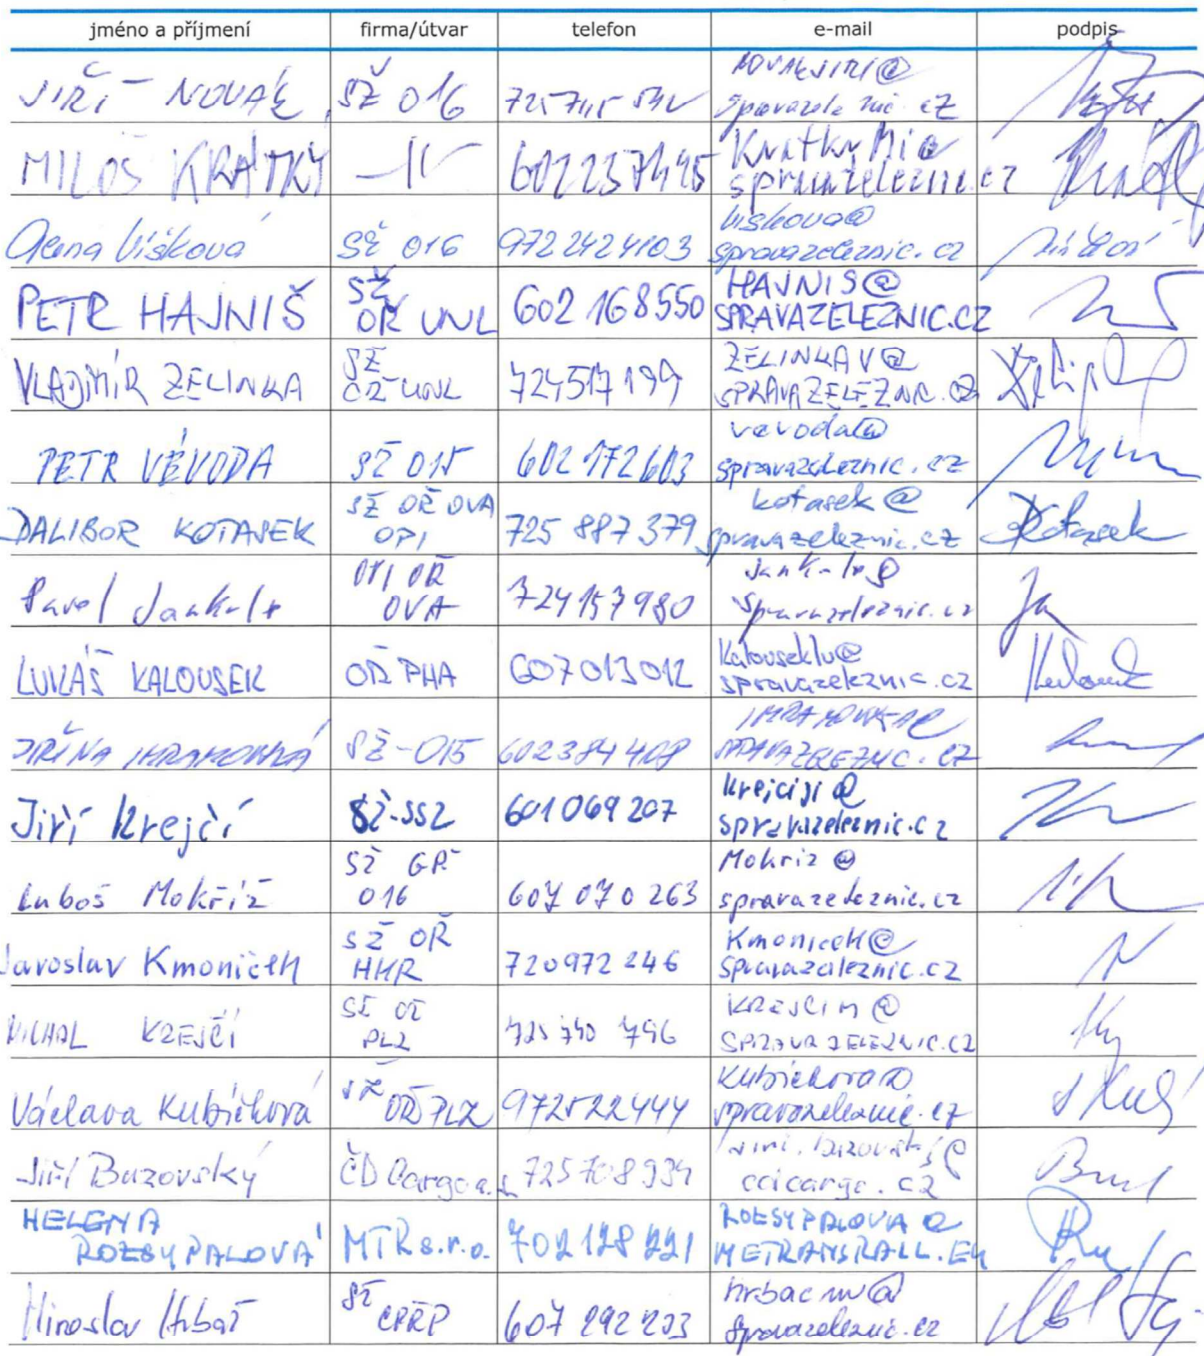 jméno a příjmení firma/útvar telefon e-mail podpis
JIŘÍ NOVÁK SŽ 016 novakjiri@
spravazeleznic.cz
MILOŠ KRÁTKÝ —||— KratkyMi@
spravazeleznic.cz
Alena Víšková SŽ 016 9722424103 viskova@
spravazeleznic.cz
PETR HAJNIŠ SŽ
OŘ UNL 602 168 550 HAJNIS@
SPRAVAZELEZNIC.CZ
VLADIMÍR ZELINKA SŽ
OŘ UNL 724517199 ZELINKAV@
SPRAVAZELEZNIC.CZ
PETR VÉVODA SŽ 015 602 172 603 vevoda@
spravazeleznic.cz
DALIBOR KOTASEK SŽ OŘ OVA
OPI 725 887 379 kotasek@
spravazeleznic.cz Kotasek
Pavel OPI OŘ
OVA 724157980
spravazeleznic.cz
LUKÁŠ KALOUSEK OŘ PHA 607013012 Kalouseklu@
spravazeleznic.cz
JIŘINA SŽ-015 602384408
SPRAVAZELEZNIC.CZ
Jiří Krejčí SŽ-SSZ 601 069 207 krejciji@
spravazeleznic.cz
Luboš Mokříž SŽ GŘ
016 607 070 263 Mokriz@
spravazeleznic.cz
Jaroslav Kmoníček SŽ OŘ
HKR 720972246 Kmonicek@
spravazeleznic.cz
MICHAL KREJČÍ SŽ OŘ
PLZ 725 740 796 KREJCIM@
SPRAVAZELEZNIC.CZ
Václava Kubíčková SŽ
OŘ PLZ 972522444 Kubickova@
spravazeleznic.cz
Jiří Buzovský ČD Cargo a.s. 725708934 jiri.buzovsky@
cdcargo.cz
HELENA
ROZSYPALOVÁ MTR s.r.o. 702 128 221 ROZSYPALOVA@
METRANSRAIL.EU
Miroslav Hrbáč SŽ
607 292 203 hrbacm@
spravazeleznic.cz